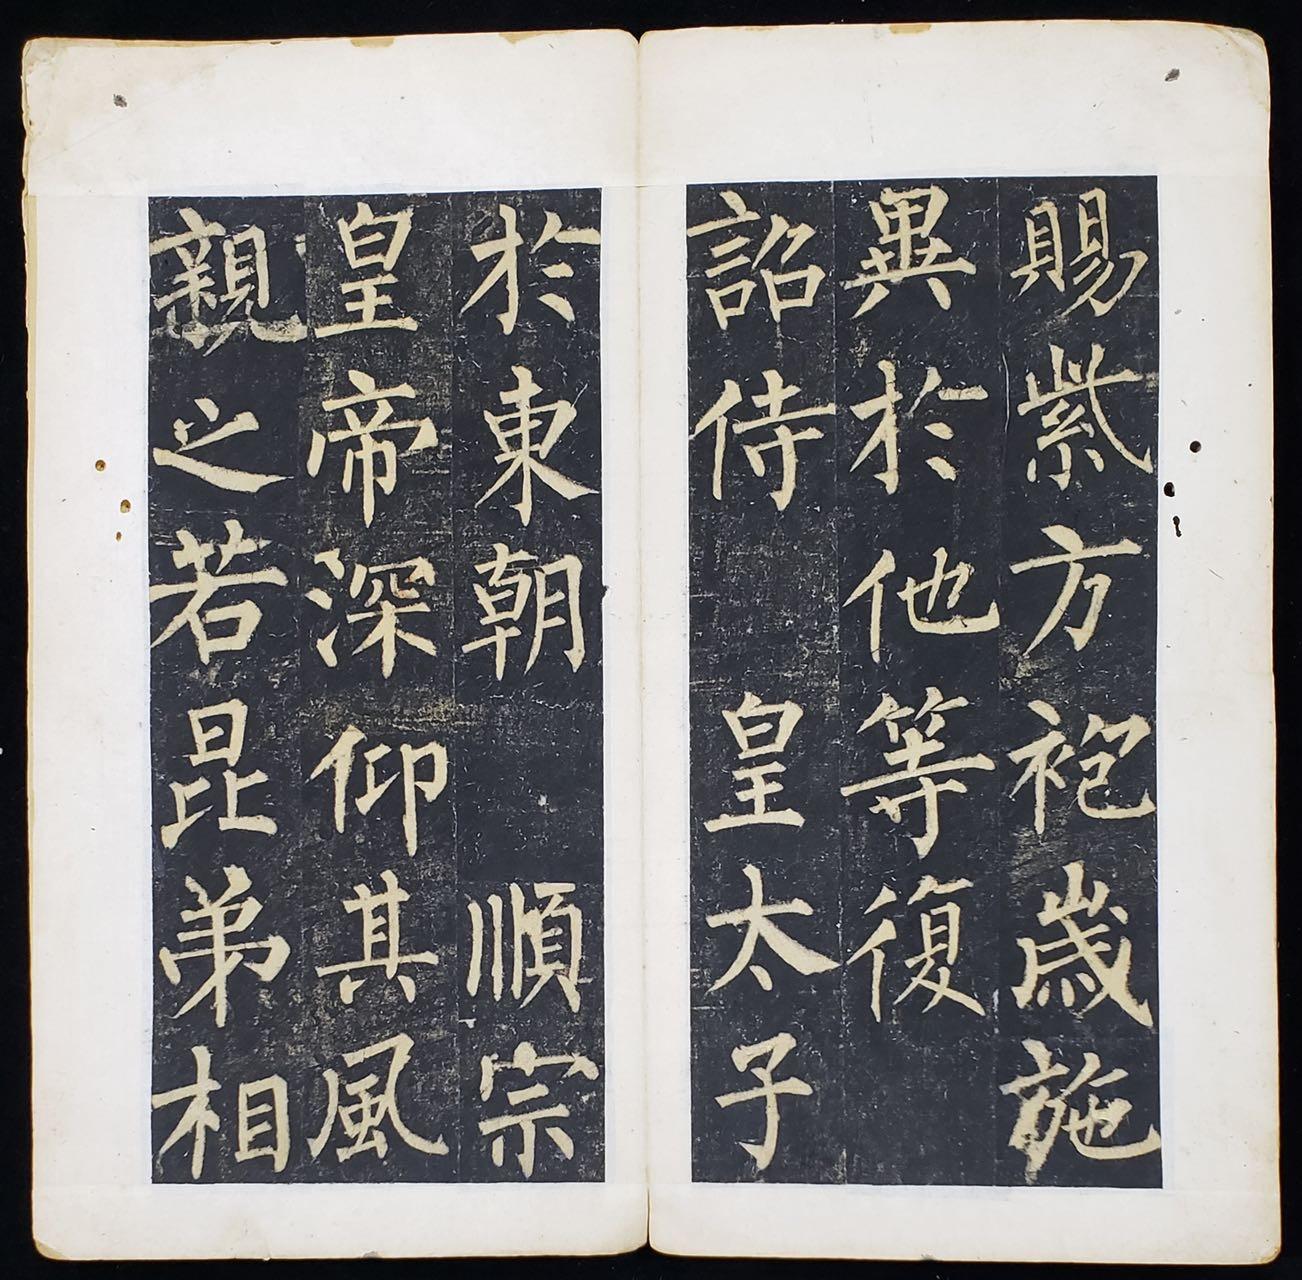 賜紫方袍歲施
異於他等復
詔侍皇太子
於東朝順宗
皇帝深仰其風
親之若昆弟相